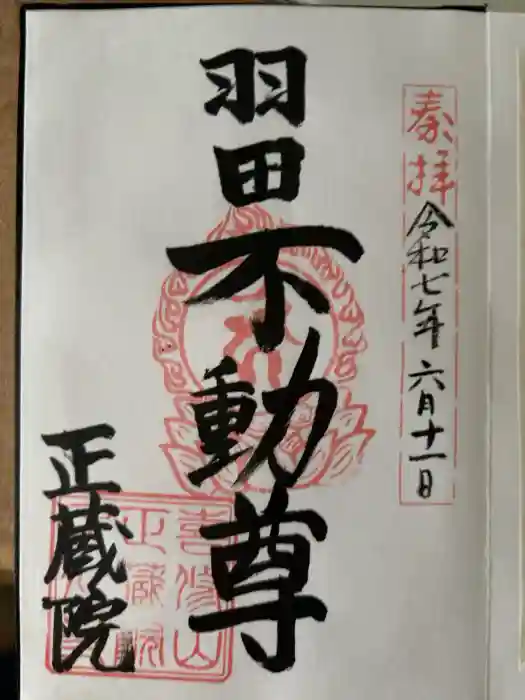 奉拝
令和七年六月十一日
羽田不動尊
正蔵院